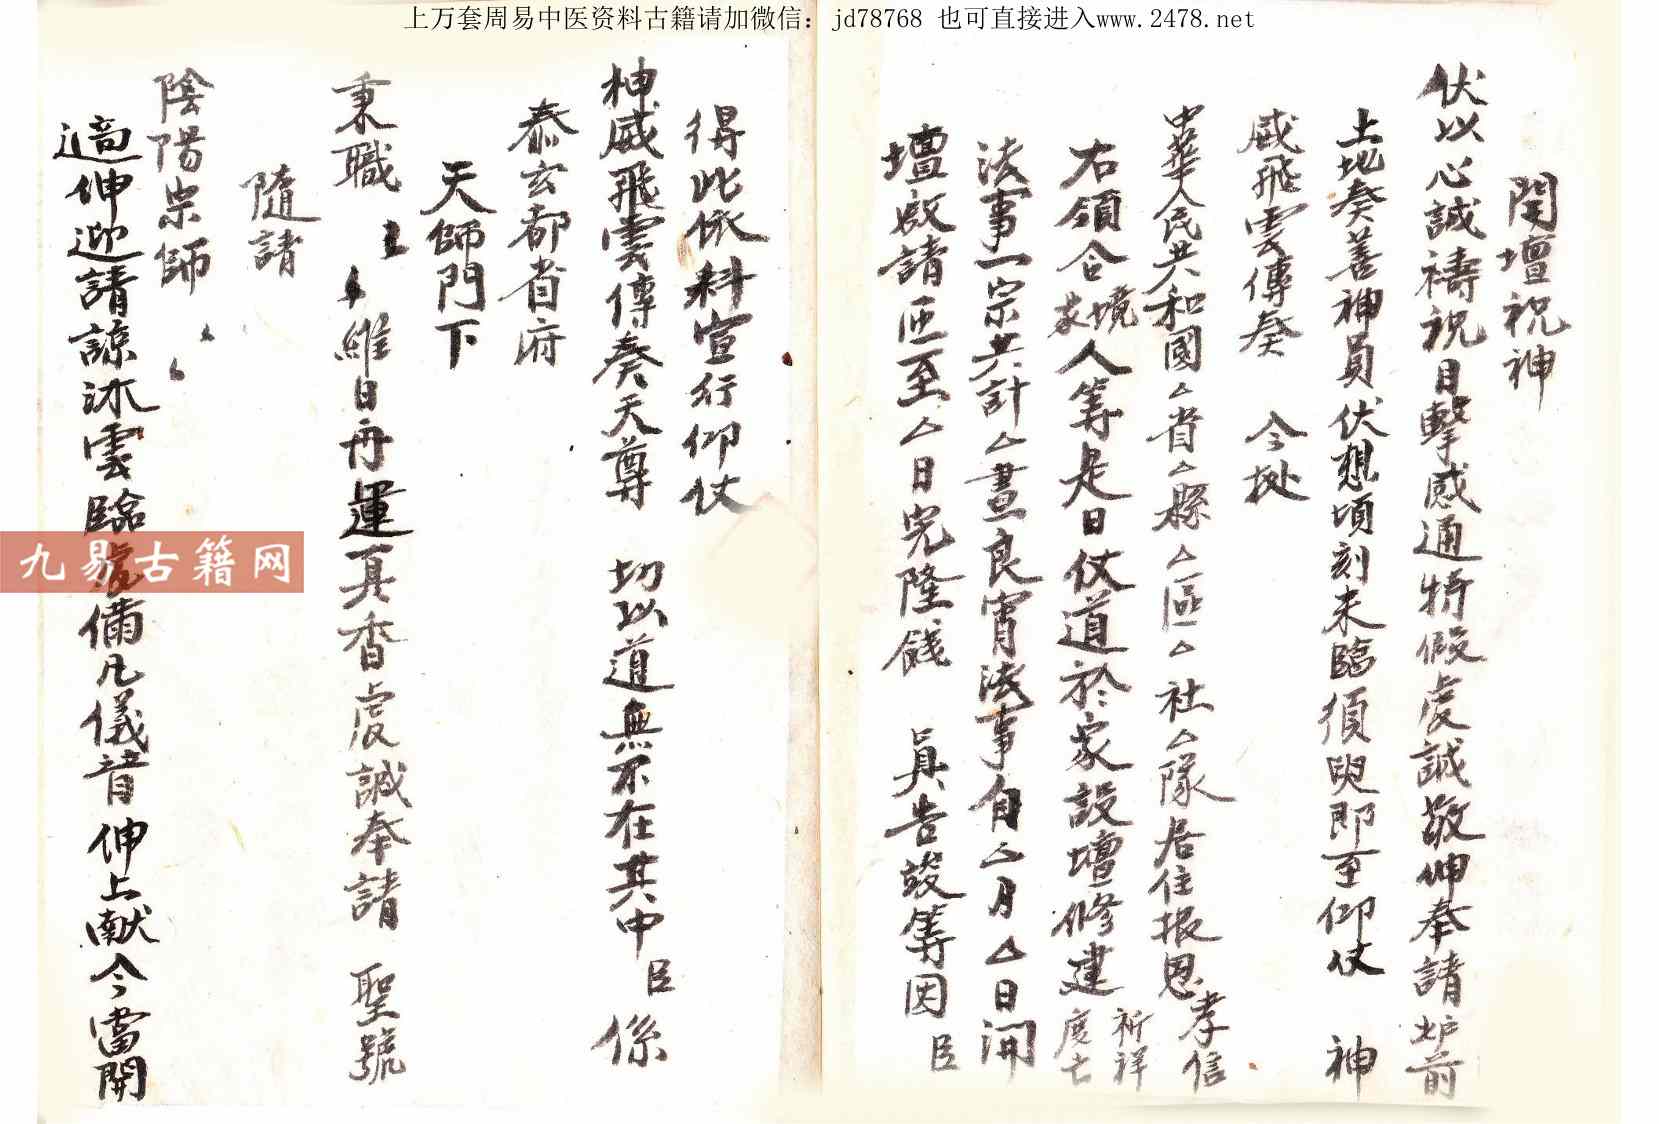 上万套周易中医资料古籍请加微信：jd78768 也可直接进入www.2478.net
開壇祝神
伏以心誠禱祝目擊感通特假虔誠敬伸奉請炉前
土地奏善神員伏想頃刻未臨須臾即至仰仗 神
威飛雲傳奏 今据
中華人民共和國△省△縣△區△社△隊居住报恩孝信
右領合境家人等是日仗道於家設壇修建祈祥度亡
法事一宗共計△晝良宵法事自△月△日開
壇啟請匝至△日完隆餞 具告竣等因 臣
得此依科宣行仰仗
神威飛雲傳奏天尊 切以道無不在其中 臣 係
泰玄都省府
天師門下
秉職 維日再運真香虔誠奉請 聖號
隨請
陰陽宗師
適伸迎請諒沐雲臨處備凡儀音 伸上献今當開
九易古籍网